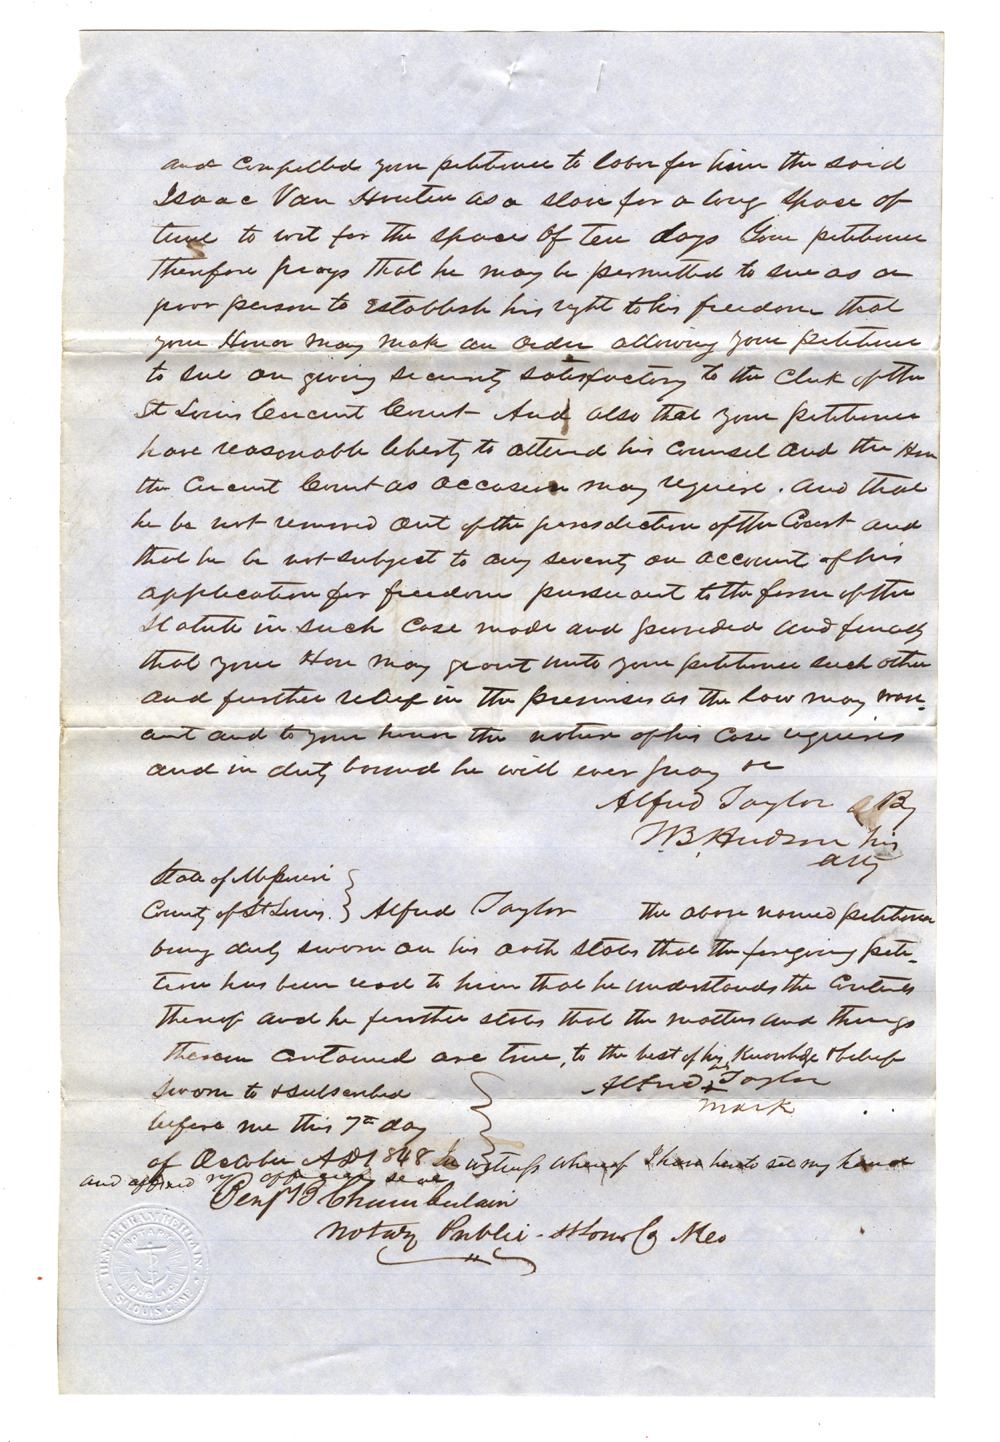 and compelled your petitioner to labor for him the said
Isaac Van Houten as a slave for a long space of
time to wit for the space of ten days Your petitioner
therefore prays that he may be permitted to sue as a
poor person to establish his right to his freedom that
your Honor may make an order allowing your petitioner
to sue on giving security satisfactory to the Clerk of the
St Louis Circuit Court And also that your petitioner
have reasonable liberty to attend his counsel and the Hon
the Circuit Court as occasion may require. and that
he be not removed out of the jurisdiction of the Court and
that he be not subject to any severity on account of his
application for freedom pursuant to the form of the
Statute in such case made and provided and finally
that your Hon may grant unto your petitioner such other
and further relief in the premises as the law may war-
ant and to your honor the nature of his case requires
and in duty bound he will ever pray &c
Alfred Taylor By
T.B. Hudson his
atty
State of Missouri
County of St Louis } Alfred Taylor the above named petitioner
being duly sworn on his oath states that the foregoing peti-
tion has been read to him that he understands the contents
thereof and he further states that the matters and things
therein contained are true, to the best of his knowledge & belief
Sworn to & subscribed
Alfred his X Taylor
mark
before me this 7th day
of October AD 1848 In witness whereof I have hereto set my hand
and affixed my official seal
Benj B Chamberlain
Notary Public - St Louis Co Mo
NOTARY
PUBLIC
ST LOUIS CO MO